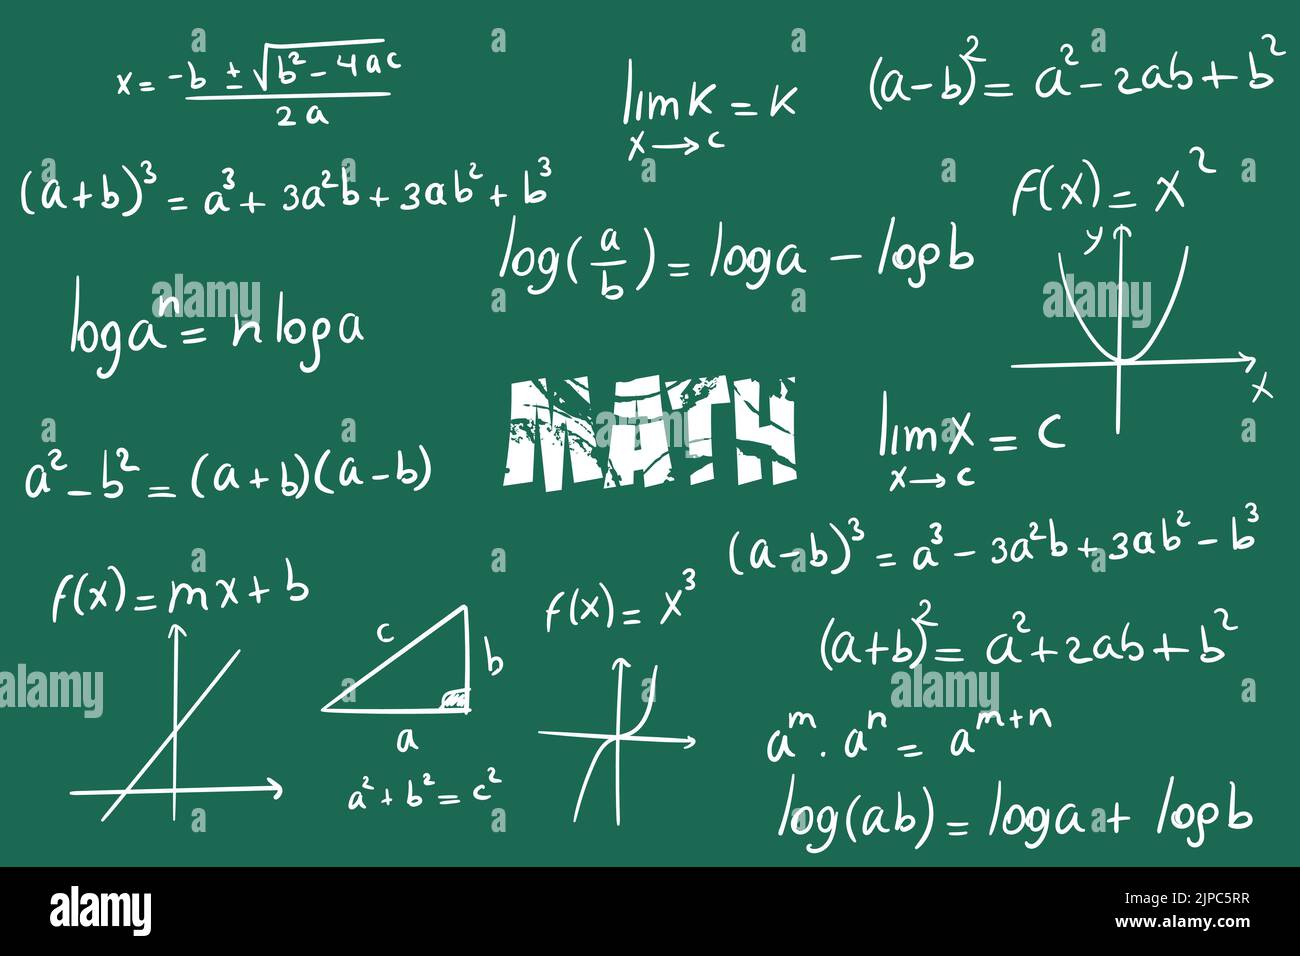 x = -b ± √b² - 4ac
2a
lim K = K
x → c
(a-b)² = a² - 2ab + b²
(a+b)³ = a³ + 3a²b + 3ab² + b³
f(x) = x²
y
x
log(a/b) = log a - log b
log aⁿ = n log a
MATH
lim x = c
x → c
a² - b² = (a+b)(a-b)
(a-b)³ = a³ - 3a²b + 3ab² - b³
f(x) = mx + b
c
b
a
a² + b² = c²
f(x) = x³
(a+b)² = a² + 2ab + b²
aᵐ . aⁿ = aᵐ⁺ⁿ
log(ab) = log a + log b
alamy
Image ID: 2JPC5RR
www.alamy.com